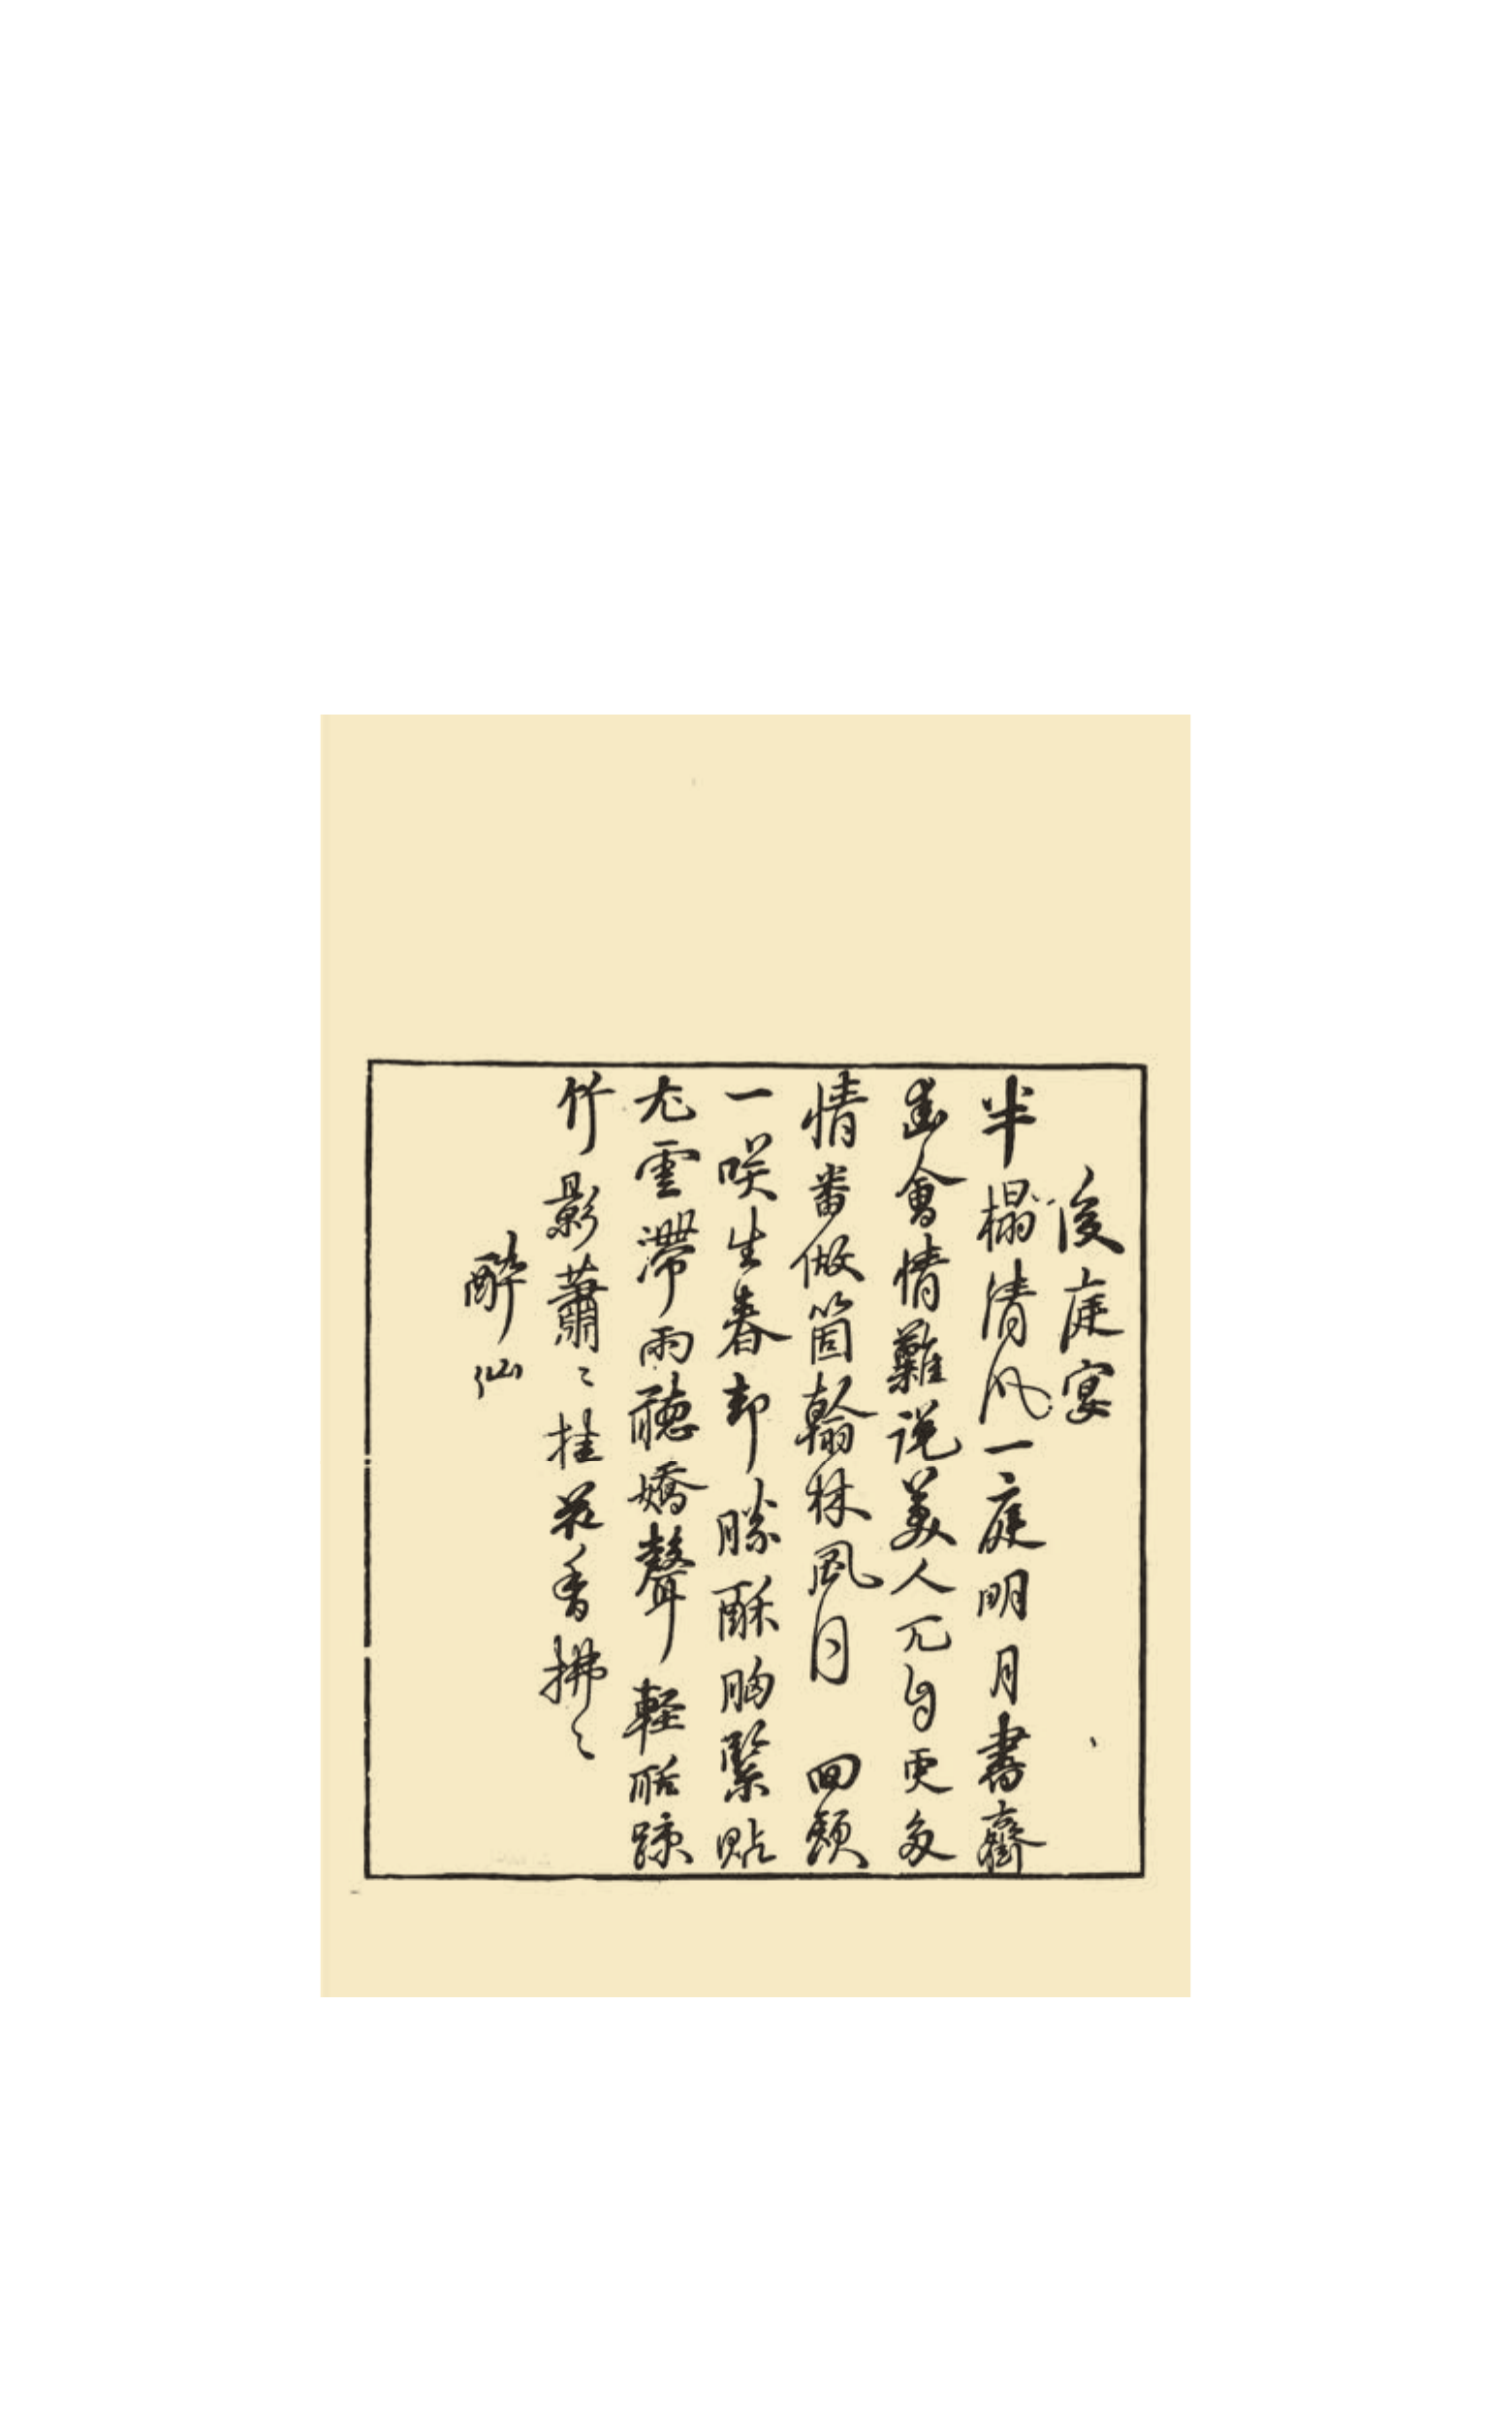 後庭宴
半榻清风一庭明月書齋
幽會情難说美人兀自更多
情番做箇翰林風月 回頭
一咲生春却勝酥胸緊貼
尤雲滯雨聽嬌聲輕聒疎
竹影蕭〻桂花香拂〻
醉仙